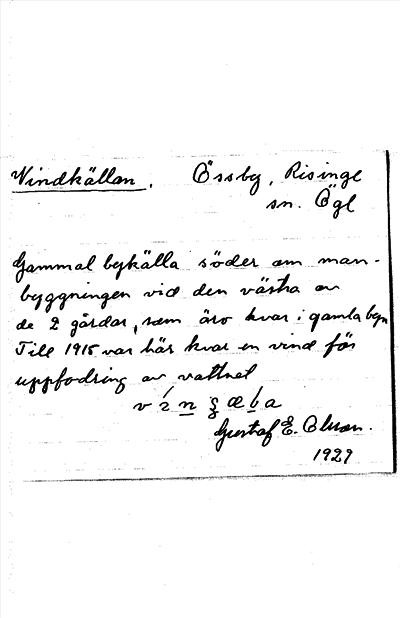 Vindkällan. Össby, Risinge
sn. Ögl
Gammal bykälla söder om man-
byggningen vid den västra av
de 2 gårdar, som äro kvar i gamla byn
Till 1915 var här kvar en vind för
uppfodring av vattnet
Gustaf E.
1929